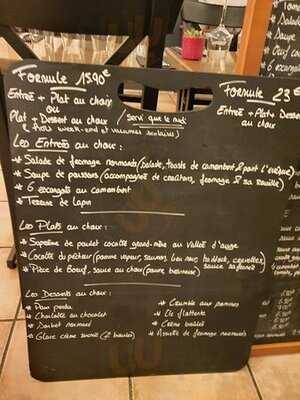 Formule 15.90€
Formule 23€
Entrée + Plat au choix
ou
Plat + Dessert au choix
(servi que le midi
Entrée + Plat + Dessert
au choix
Les Entrées au choix :
* Salade de fromage normands (salade, toasts de camembert & pont l'évêque)
* Soupe de poissons (accompagnée de croûtons, fromage & sa rouille)
* 6 escargots au camembert
* Terrine de lapin
Les Plats au choix :
* Suprême de poulet cocotte grand-mère au Vallée d'auge
* Cocotte du pêcheur (pomme vapeur, saumon, lieu noir, haddock, crevettes
sauce safranée)
* Pièce de Boeuf, sauce au choix (poivre
Les Desserts au choix :
* Pain perdu
* Charlotte au chocolat
* Sorbet normand
* Glace crème sucrée (2 boules)
* Crumble aux pommes
* Ile flottante
* Crème brûlée
* Assiette de fromage normands